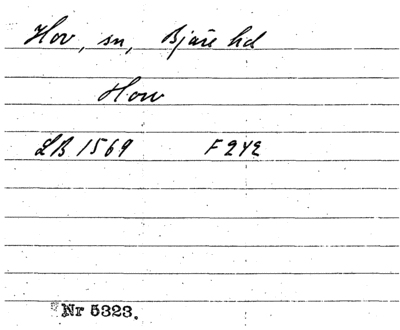 Hov, sn, Bjäre hd
How
LB 1569 F 242
Nr 5323.